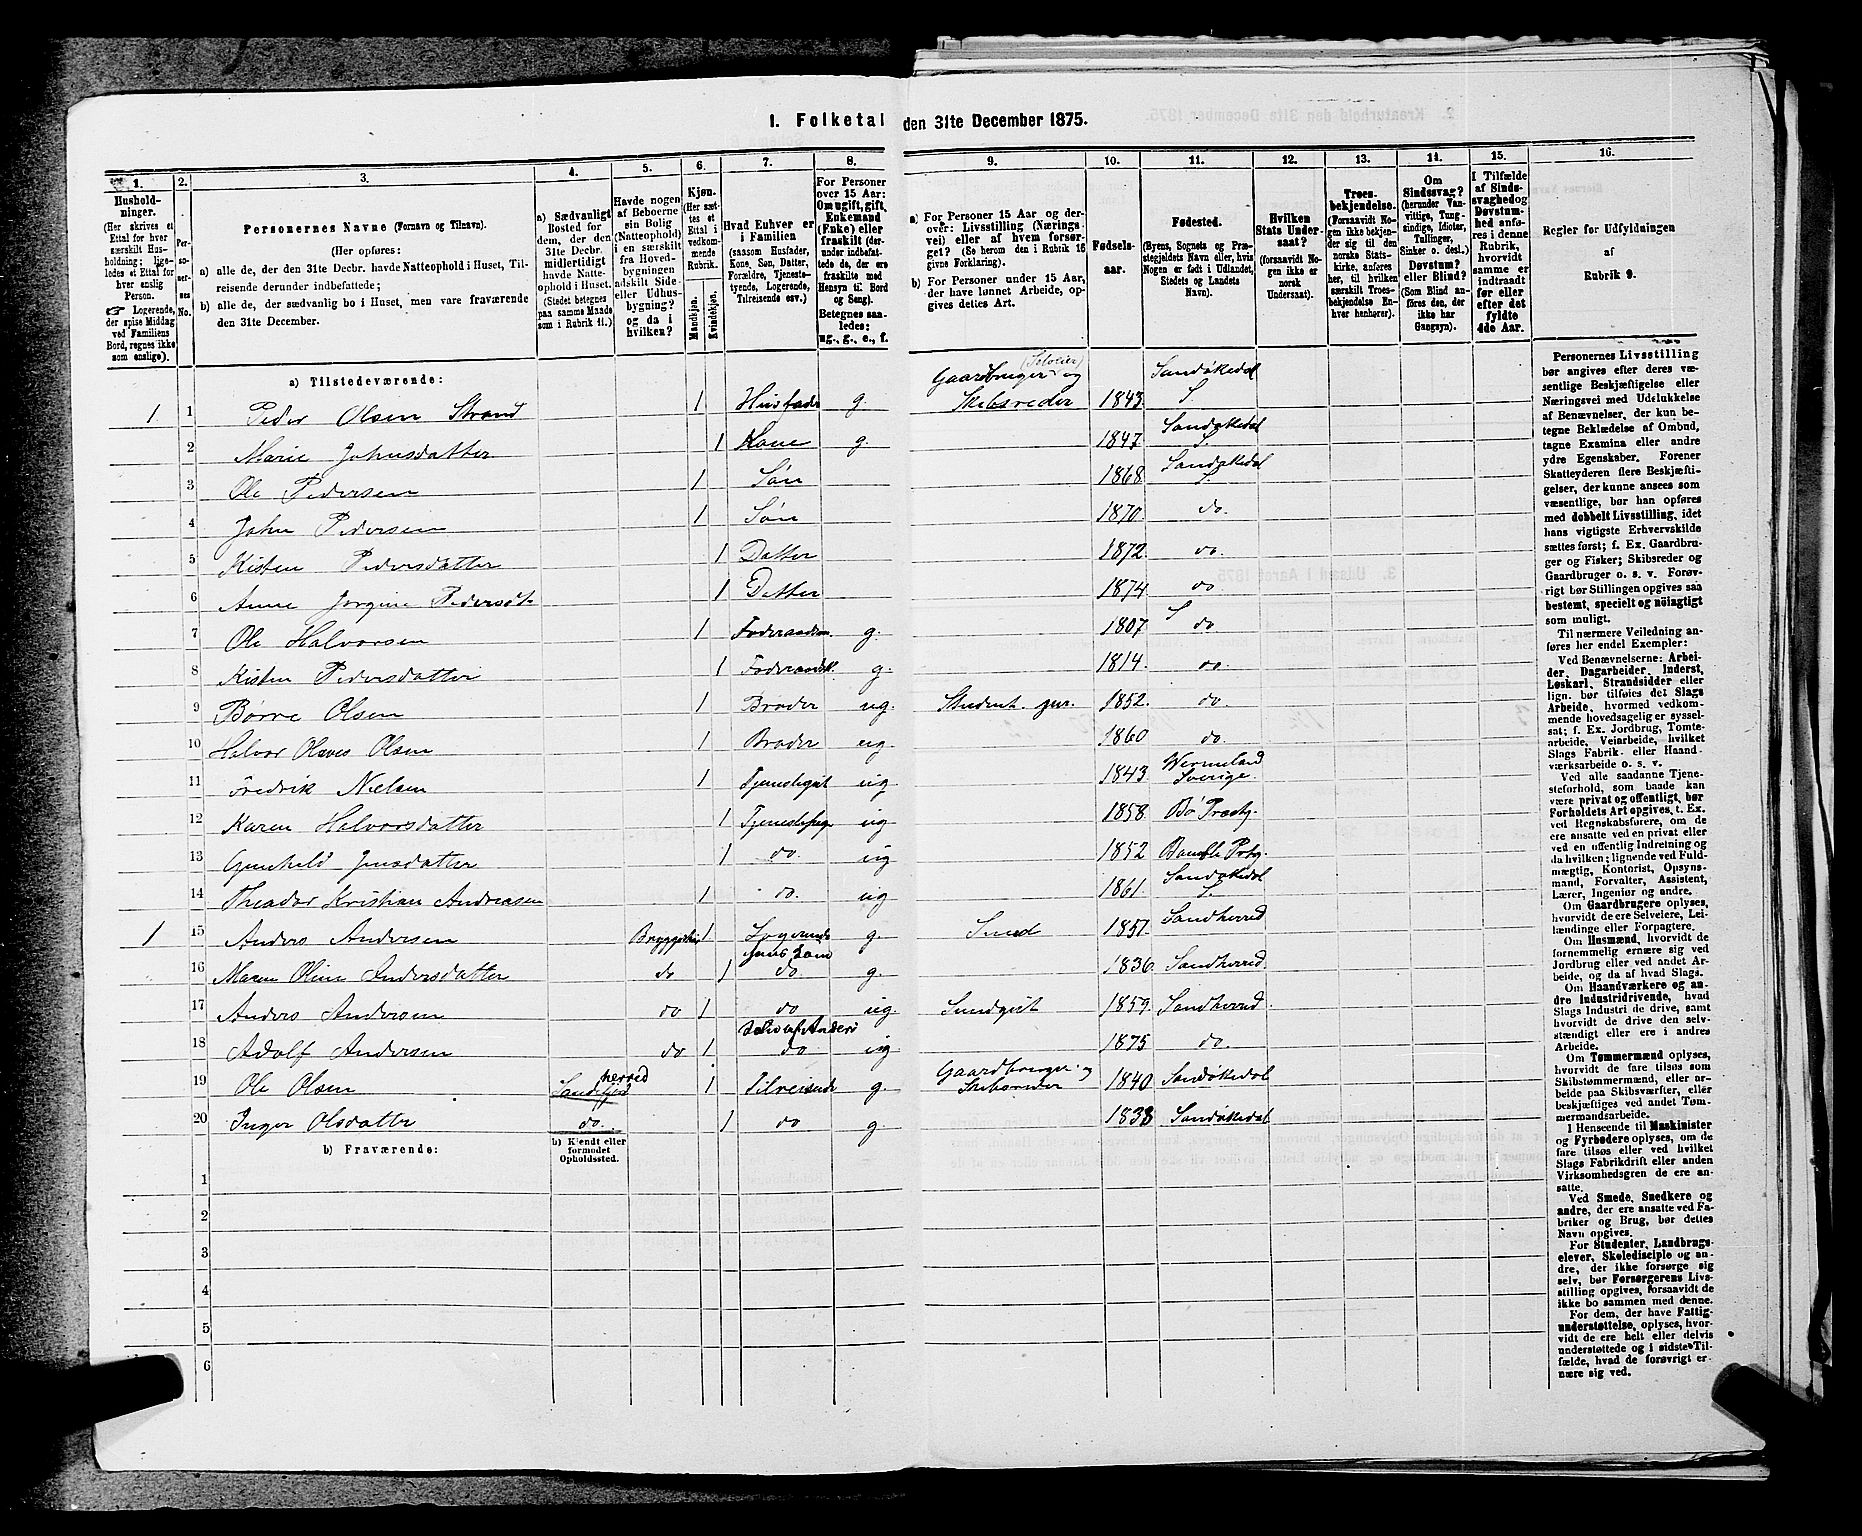 1. Folketal den 31te December 1875.
1.
2.
3.
4.
5.
6.
7.
8.
9.
10.
11.
12.
13.
14.
15.
16.
Husholdninger.
(Her skrives et
Ettal for hver
særskilt Husholdning;
ligeledes et Ettal for
hver enslig
Person.
Logerende,
der spise Middag
ved Familiens
Bord, regnes ikke
som enslige).
Personernes No.
Personernes Navne (Fornavn og Tilnavn).
(Her opføres:
a) alle de, der den 31te Decbr. havde Natteophold i Huset, Tilreisende derunder indbefattede;
b) alle de, der sædvanlig bo i Huset, men vare fraværende
den 31te December.
a) Sædvanligt
Bosted for
dem, der den
31te Decbr.
midlertidigt
havde Natteophold i Huset.
(Stedet betegnes
paa samme Maade
som i Rubrik 11.)
Havde nogen
af Beboerne
sin Bolig
(Natteophold)
i en særskilt
fra Hovedbygningen
adskilt Side- eller Udhusbygning?
og da i
hvilken?
Kjøn.
(Her sættes et
Ettal i
vedkommende
Rubrik.
Mandkjøn.
Kvindekjøn.
Hvad Enhver er
i Familien
(saasom Husfader,
Kone, Søn, Datter,
Forældre, Tjenestetyende, Logerende,
Tilreisende osv.)
For Personer
over 15 Aar:
Om ugift, gift,
Enkemand
(Enke) eller
fraskilt (derunder indbefattede de, der ere
fraskilte med
Hensyn til Bord
og Seng).
Betegnes saaledes:
ug., g., e., f.
a) For Personer 15 Aar og derover: Livsstilling (Næringsvei) eller af hvem forsørget? (Se herom den i Rubrik 16
givne Forklaring).
b) For Personer under 15 Aar,
der have lønnet Arbeide, opgives dettes Art.
Fødselsaar.
Fødested.
(Byens, Sognets og Præstegjeldets Navn eller, hvis
Nogen er født i Udlandet,
Stedets og Landets
Navn).
Hvilken
Stats Undersaat?
(forsaavidt Nogen ikke er
norsk
Undersaat).
Troesbekjendelse.
(Forsaavidt Nogen ikke bekjender sig til den
norske Statskirke, anføres
her, til hvilken
særskilt Troesbekjendelse Enhver henhører).
Om
Sindssvag?
(herunder Vanvittige, Tungsindige, Idioter,
Tullinger,
Sinker o. desl.)
Døvstum?
eller Blind?
(Som Blind anføres den, der
ikke har
Gangsyn).
I Tilfælde
af Sindssvaghed og
Døvstumhed anføres i denne
Rubrik,
hvorvidt
samme er
indtraadt
før eller
efter det
fyldte
4de Aar.
Regler for Udfyldningen
af
Rubrik 9.
a) Tilstedeværende:
1 1 Peder Olsen Strand 1 Husfader g. Gaardbruger (Selveier) og Skibsreder 1843 Sandøkedal S.
2 Marie Johnsdatter 1 Kone g. 1847 Sandøkedal S.
3 Ole Pedersen 1 Søn 1868 Sandøkedal S.
4 John Pedersen 1 Søn 1870 do.
5 Kisten Pedersdatter 1 Datter 1872 do
6 Anne Jorgine Pedersdt. 1 Datter 1874 do
7 Ole Halvorsen 1 Føderaadsm. g. 1807 S do
8 Kisten Pedersdatter 1 Føderaadsk. g. 1814 do
9 Børre Olsen 1 Broder ug. Student. jur. 1852 do.
10 Halvor Olaves Olsen 1 Broder ug. 1860 do.
11 Fredrik Nielsen 1 Tjenestegut ug 1843 Wermeland Sverige.
12 Karen Halvorsdatter 1 Tjenestepige ug 1858 Bø Præstg.
13 Gunhild Jensdatter 1 do. ug 1852 Bamble Prstg.
14 Theador Kristian Andreasen 1 do. ug 1861 Sandøkedal S.
1 15 Anders Andersen Bryggerhus 1 Logerende g. Smed 1851 Sandherred
16 Maren Oline Andersdatter do 1 do. g. 1836 Sandherred.
17 Anders Andersen do 1 do ug. 1859 Sandherred
18 Adolf Andersen do 1 do ug 1875 do.
19 Ole Olsen Sandeherred 1 Tilreisende g. Gaardbruger og Skibsreder 1840 Sandøkedal
20 Inger Olsdatter do. 1 do g 1838 Sandøkedal
b) Fraværende:
b) Kjendt eller
formodet
Opholdssted.
1
2
3
4
5
6
Personernes Livsstilling
bør angives efter deres væsentlige Beskjæftigelse eller
Næringsvei med Udelukkelse
af Benævnelser, der kun betegne Beklædelse af Ombud,
tagne Examina eller andre
ydre Egenskaber. Forener
Skatteyderen flere Beskjæftigelser, der kunne ansees som
væsentlige, bør han opføres
med dobbelt Livsstilling, idet
hans vigtigste Erhvervskilde
sættes først; f. Ex. Gaardbruger og Fisker; Skibsreder og
Gaardbruger o. s. v. Forøvrigt bør Stillingen opgives saa
bestemt, specielt og nøiagtigt
som muligt.
Til nærmere Veiledning anføres her endel Exempler:
Ved Benævnelserne: Arbeider, Dagarbeider, Inderst,
Løskarl, Strandsidder eller
lign. bør tilføies det Slags
Arbeide, hvormed vedkommende hovedsagelig er sysselsat; f. Ex. Jordbrug, Tomtearbeide, Veiarbeide, hvilket
Slags Fabrik- eller Haandværksarbeide o. s. v.
Ved alle saadanne Tjenesteforhold, som baade kan
være privat og offentligt, bør
Forholdets Art opgives, t. Ex.
ved Regnskabsførere, om de
ere ansatte ved en privat eller
ved en offentlig Indretning og
da hvilken; lignende ved Fuldmægtig, Kontorist, Opsynsmand, Forvalter, Assistent,
Lærer, Ingeniør og andre.
Om Gaardbrugere oplyses,
hvorvidt de ere Selveiere, Leilændinge eller Forpagtere.
Om Husmænd, hvorvidt de
fornemmelig ernære sig ved
Jordbrug eller ved andet Arbeide, og da af hvad Slags.
Om Haandværkere og andre Industridrivende, hvad
Slags Industri de drive, samt
hvorvidt de drive den selvstændigt eller ere i andres
Arbeide.
Om Tømmermænd oplyses,
hvorvidt de fare tilsøs som
Skibstømmermænd, eller arbeide paa Skibsværfter, eller
beskjæftiges ved andet Tømmermandsarbeide.
I Henseende til Maskinister
og Fyrbødere oplyses, om de
fare tilsøs eller ved hvilket
Slags Fabrikdrift eller anden
Virksomhedsgren de ere ansatte.
Ved Smede, Snedkere og
andre, der ere ansatte ved Fabriker og Brug, bør dettes
Navn opgives.
For Studenter, Landbrugselever, Skoledisciple og andre, der ikke forsørge sig
selv, bør Forsørgerens Livsstilling opgives, forsaavidt de
ikke bo sammen med denne.
For dem, der have Fattigunderstøttelse, oplyses, hvorvidt de ere helt eller delvis
understøttede og i sidste Tilfælde, hvad de forøvrigt ernære sig ved.